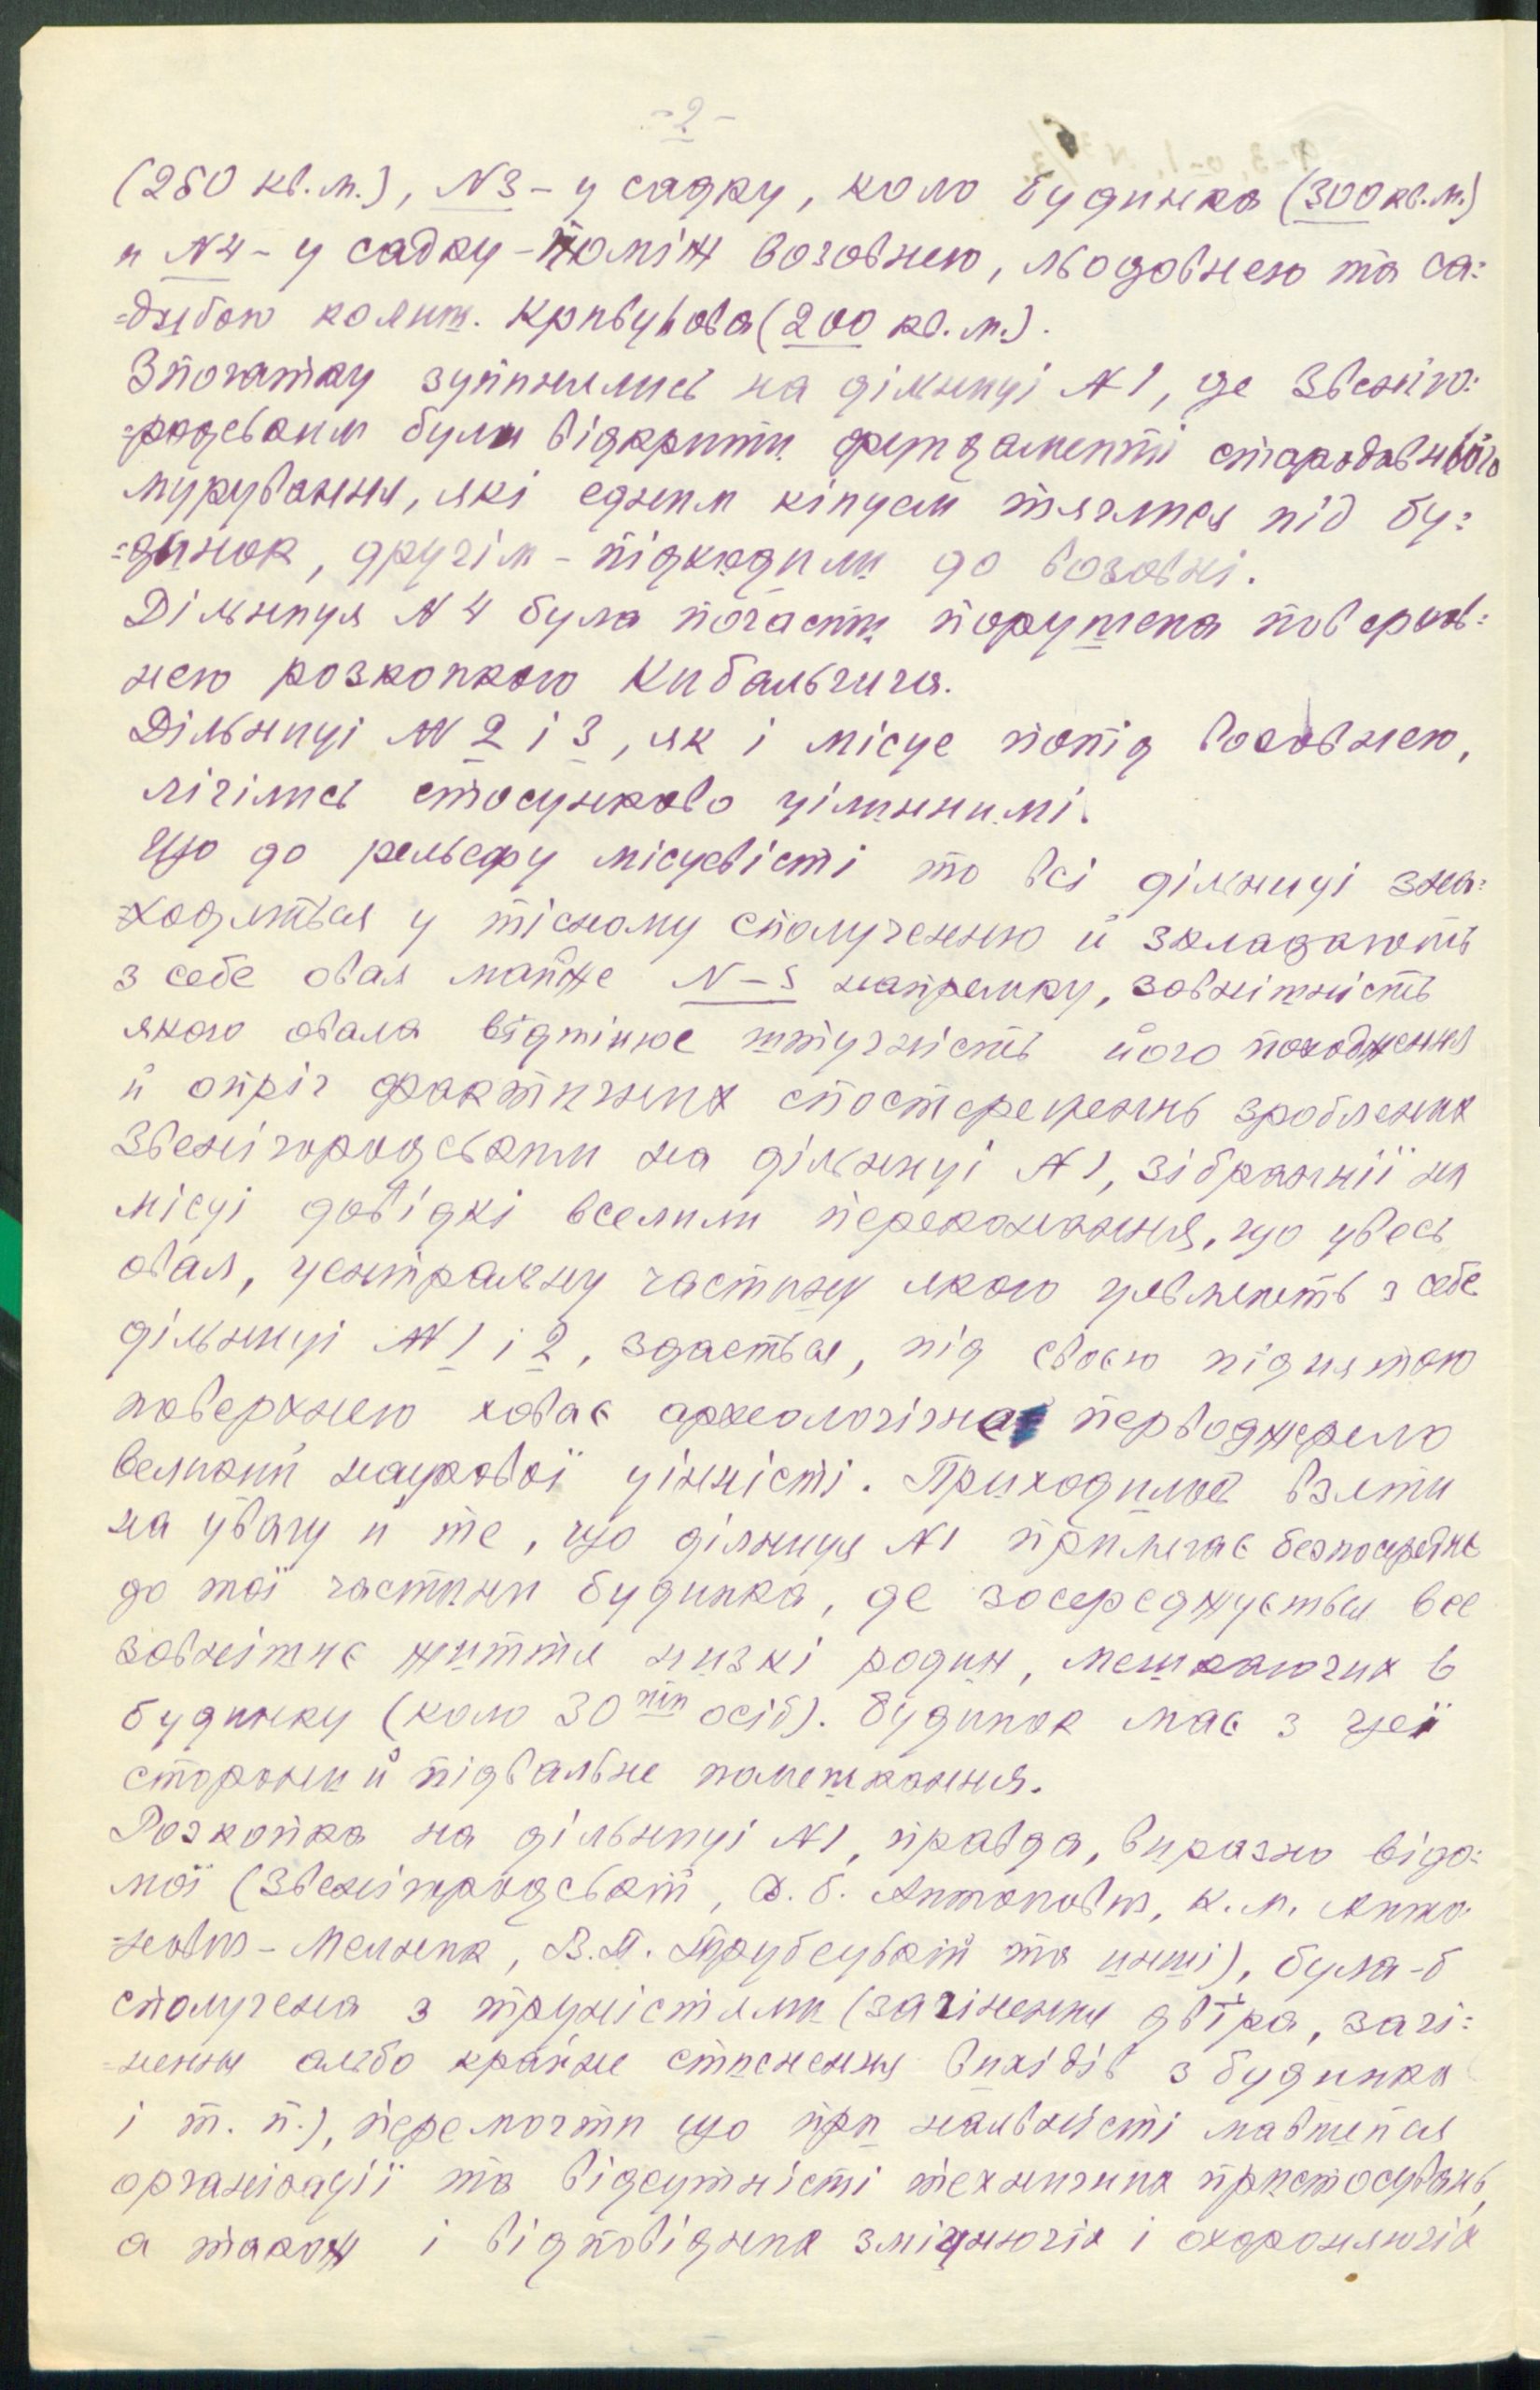 -2-
(250 кв.м.), N3 - у садку, коло будинка (300 кв.м.)
и N4 - у садку - поміж возовнею, льодовнею та са=
=дибою колиш. Кривцова (200 кв.м.).
Зпочатку зупинились на дільниці N1, де Звеніго=
=родським були відкрити фундаменті стародавнього
мурування, які едним кінцем тяглися під бу=
=динок, другім - підходили до возовні.
Дільниця N4 була почасти порушена поверхов=
нею розкопкою Кибальчича.
Дільниці NN 2 і 3, як і місце попід возовнею,
лічілись стосунково цілинними.
Що до рельефу місцевісті то всі дільниці зна=
=ходяться у тісному сполученню й зкладають
з себе овал майже N-S напрямку, зовнішність
якого овала відтінює штучність його походження
й опріч фактичних спостережень зроблених
Звенігородським на дільниці N1, зібранніі на
місці довідкі вселили переконання, що увесь
овал, центральну частину якого уявляють з себе
дільниці NN 1 і 2, здається, під своєю піднятою
поверхнею ховає археологічна перводжерело
великий наукової цінністі. Приходилось взяти
на увагу й те, що дільниця N1 прилягає безпосередне
до тої частини будинка, де зосереджується все
зовнішнє життя низкі родин, мешкаючих в
будинку (коло 30ти осіб). Будинок має з цеї
сторони й підвальне помешкання.
Розкопка на дільниці N1, правда, виразно відо=
мої (Звенігородській, Д.Б. Антонович, К.М. Анто=
=нович-Мельник, В.П. Трубецькій та инші), була-б
сполучена з трудністями (зачінення двіра, зачі=
=нення альбо крайне стиснення вихідів з будинка
і т. п.), перемогти що при наявністі мавшейся
організації та відсутністі технічних пристосувань,
а також і відповідних зміцнючіх і охороняючіх